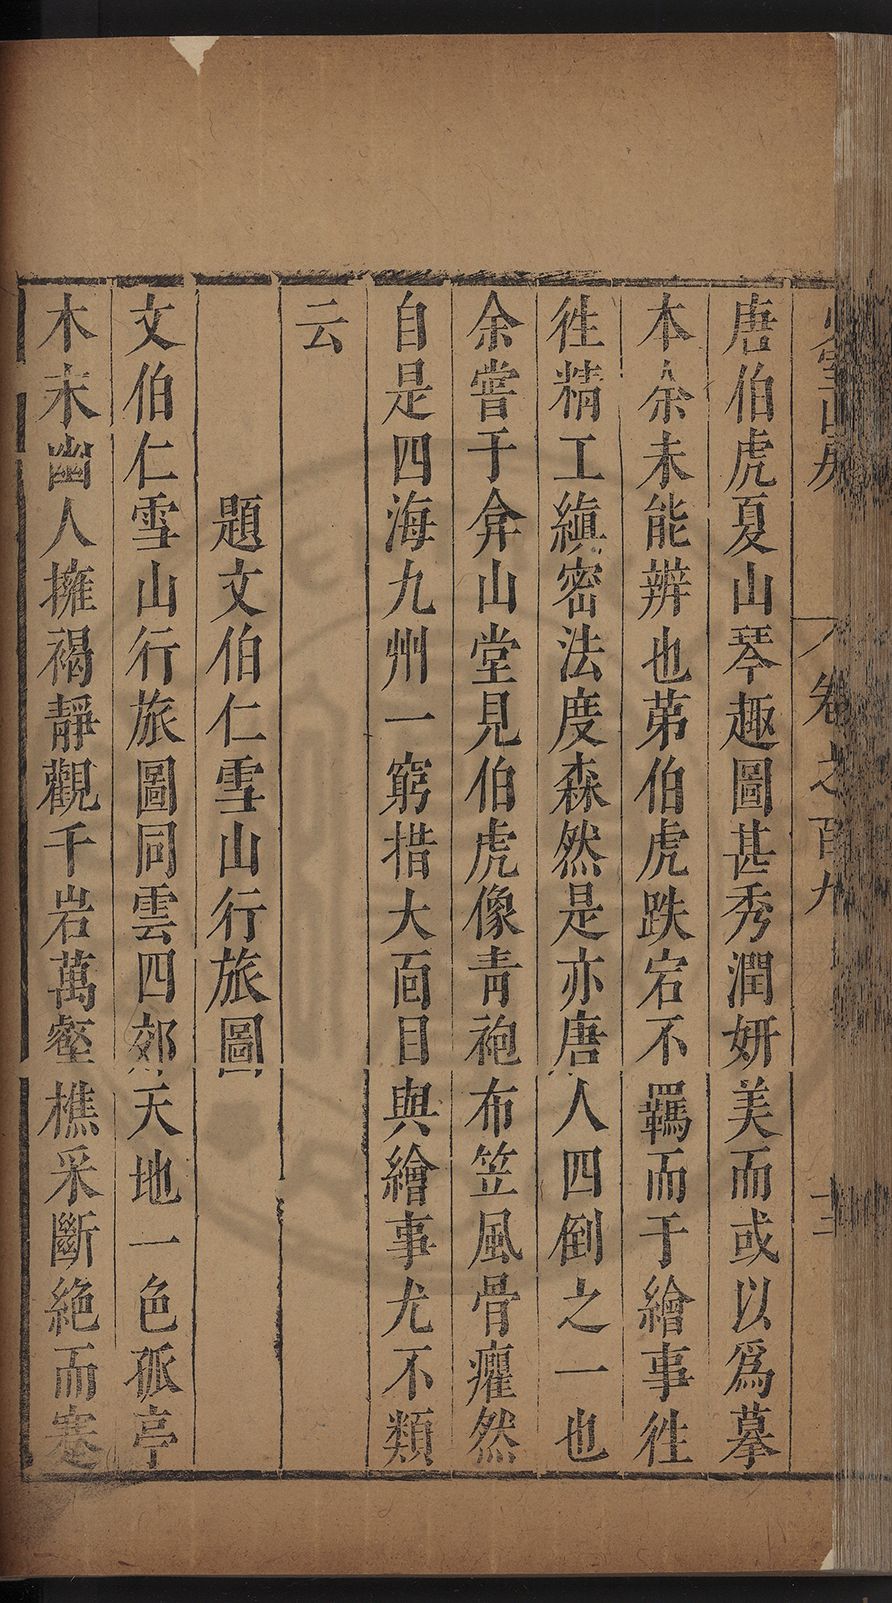 唐伯虎夏山琴趣圖甚秀潤妍美而或以爲摹
本余未能辨也苐伯虎跌宕不羈而于繪事徃
徃精工縝密法度森然是亦唐人四倒之一也
余嘗于弇山堂見伯虎像青袍布笠風骨癯然
自是四海九州一窮措大面目與繪事尤不類
云
題文伯仁雪山行旅圖
文伯仁雪山行旅圖同雲四郊天地一色孤亭
木末幽人擁褐靜觀千岩萬壑樵采斷絶而蹇
卷之百九